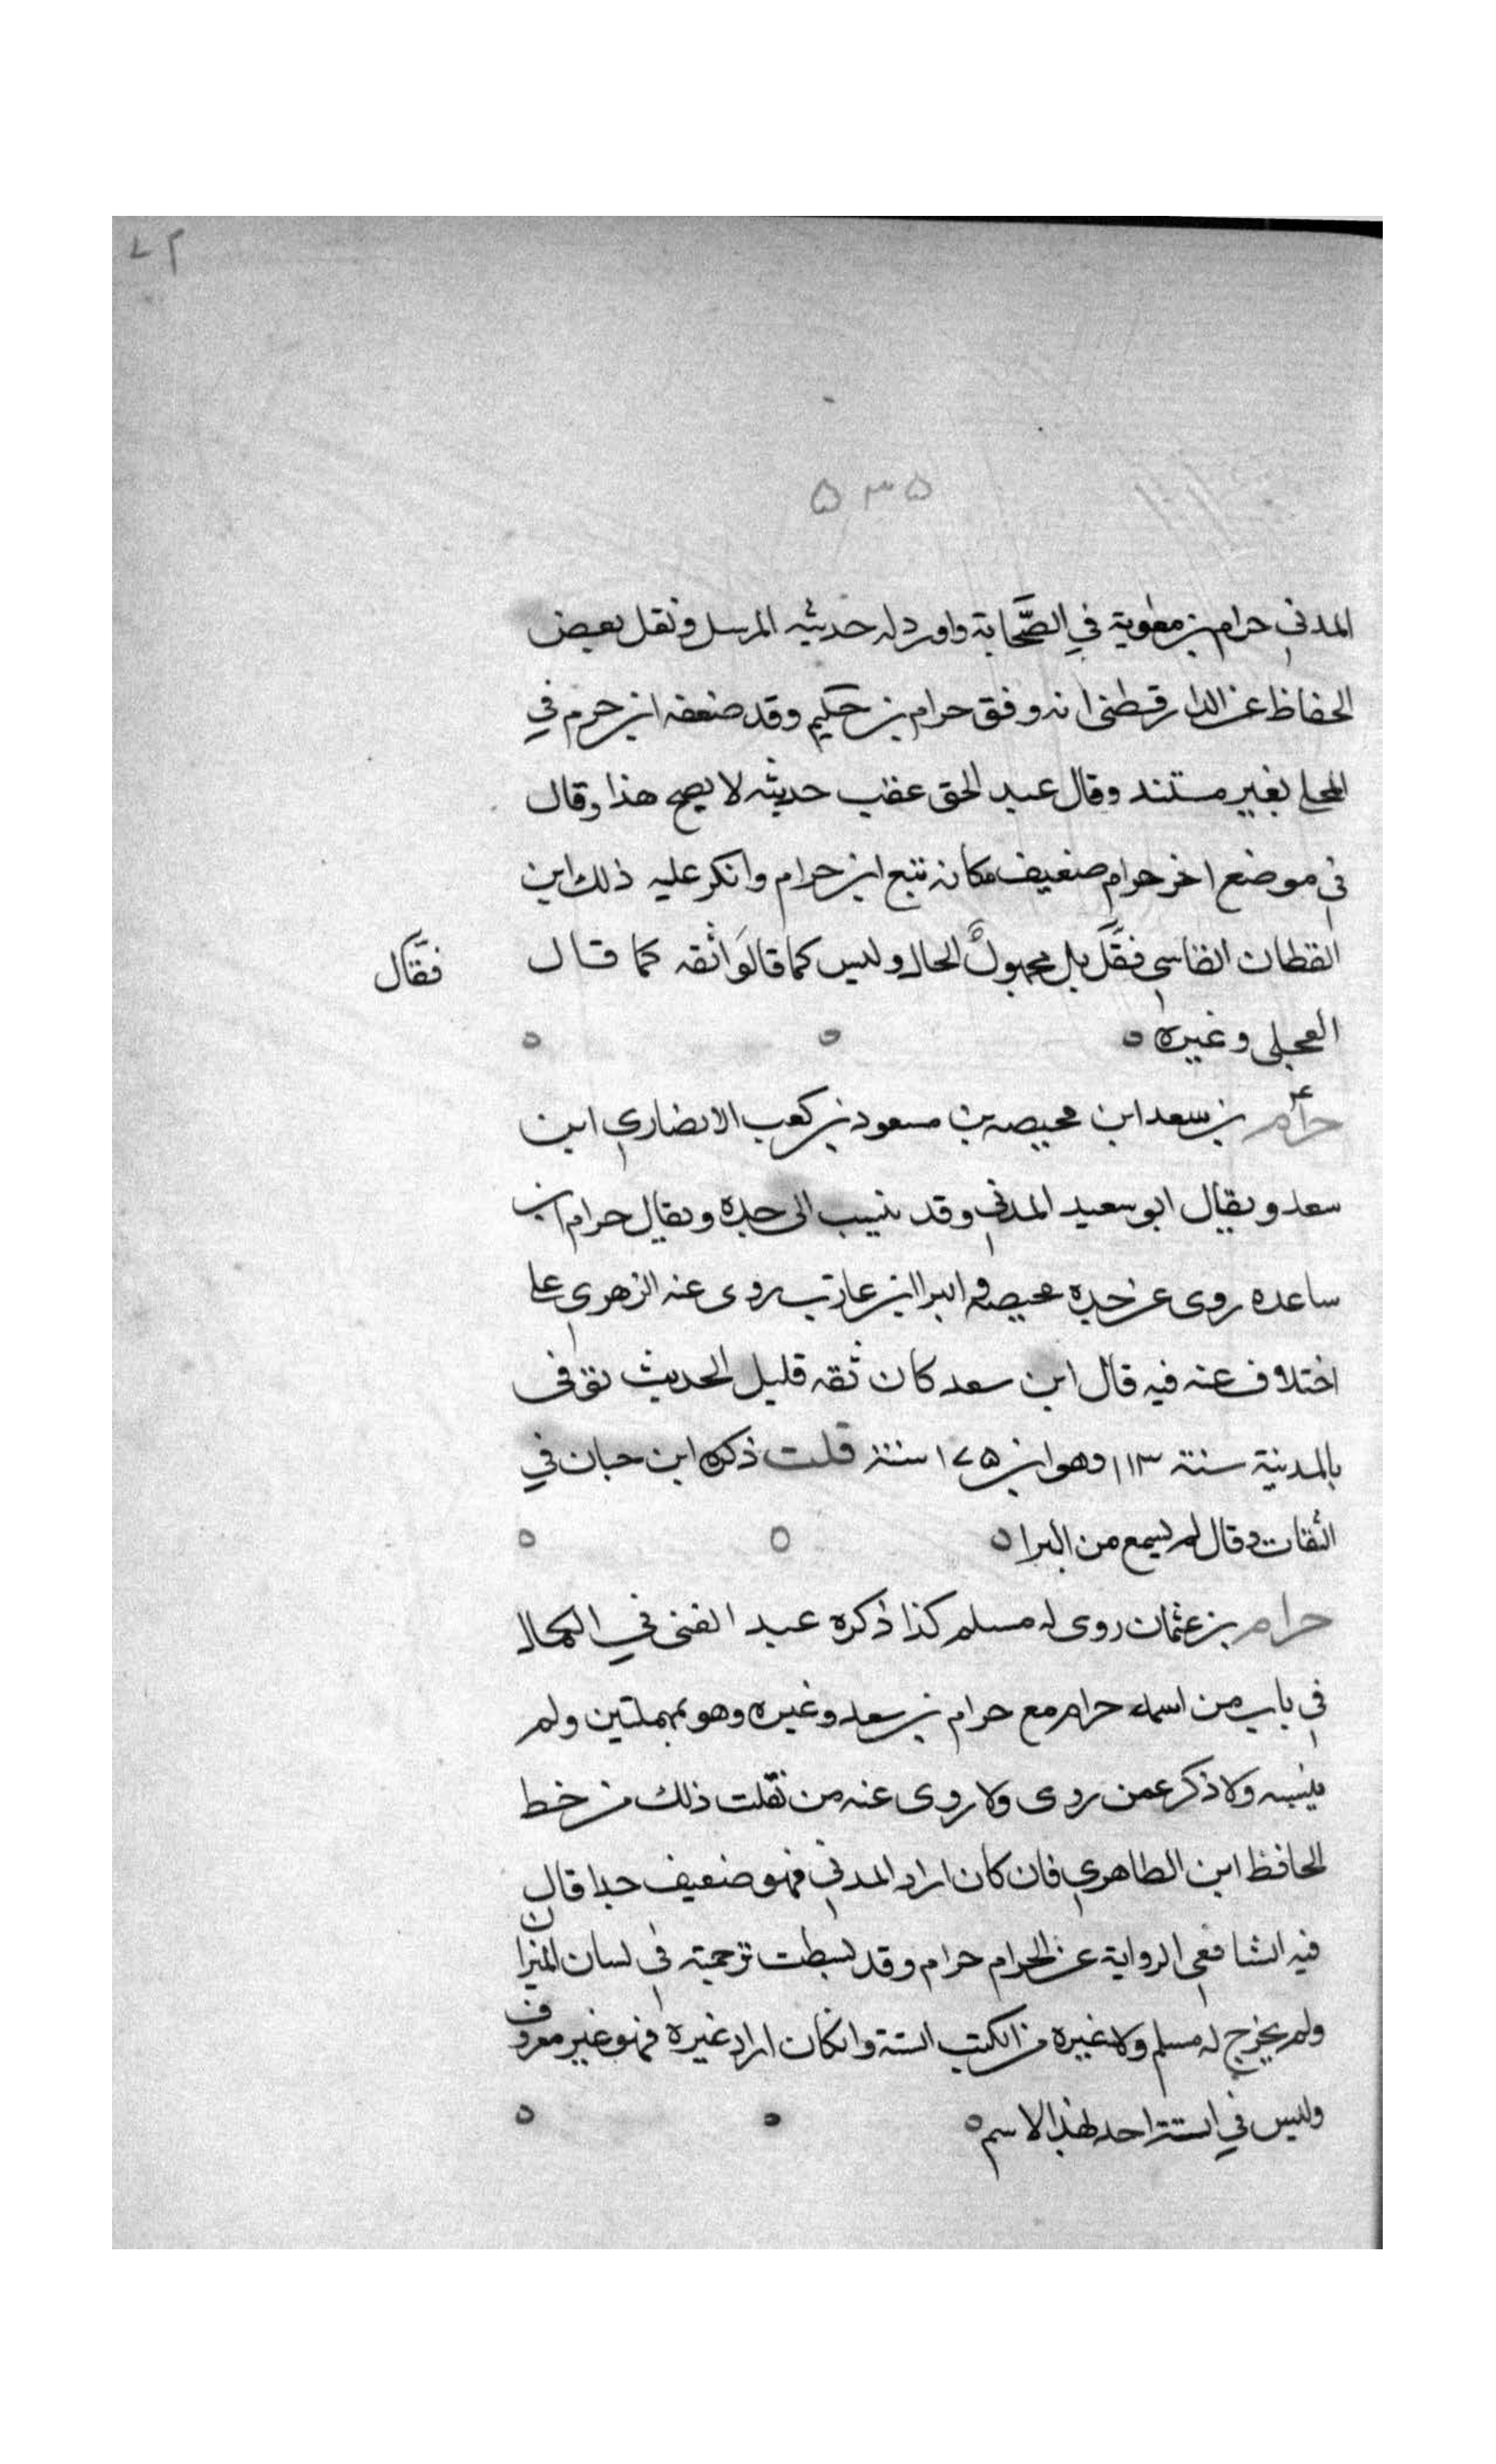 ٧٢
٥٣٥
المدني حرام بن معوية في الصَّحابة واورد له حديثه المرسل ونقل بعض
الحفاظ عن الدارقطني انه وفق حرام بن حكيم وقد ضعفه ابن حرم في
المحلى بغير مستند وقال عبد الحق عقب حديثه لا يصح هذا وقال
في موضع اخر حرام ضعيف مكانه تبع ابن حرام وانكر عليه ذلك ابن
القطان الفاسي فقَّل بل مجهول الحال وليس كما قالوا ثقه كما قال
فقال
العجلي وغيره ٥ ٥ ٥
حرام بن سعد ابن محيصه بن مسعود بن كعب الانصاري ابن
سعد ويقال ابو سعيد المدني وقد ينسب الى جده ويقال حرام ابن
ساعده روى عن جده محيصه والبرا ابن عازب روى عنه الزهري على
اختلاف عنه فيه قال ابن سعد كان ثقه قليل الحديث توفى
بالمدنية سنة ١١٣ وهو ابن ١٧٥ سنة قلت ذكره ابن حبان في
الثقات وقال لم يسمع من البرا ٥ ٥ ٥
حرام بن عثمان روى له مسلم كذا ذكره عبد الغنى في الكمال
في باب من اسمه حرام مع حرام بن سعد وغيره وهو بمهملتين ولم
ينسبه ولا ذكر عمن روى ولا روى عنه من نقلت ذلك من خط
الحافظ ابن الطاهري فان كان اراد المدني فهو ضعيف جدا قال
فيه الشافعي الرواية عن الحرام حرام وقد بسطت ترجمته في لسان الميزان
ولم يخرج له مسلم ولا غيره من الكتب الستة وانكان اراد غيره فهو غير معروف
وليس في الستة احد بهذا الاسم ٥ ٥ ٥